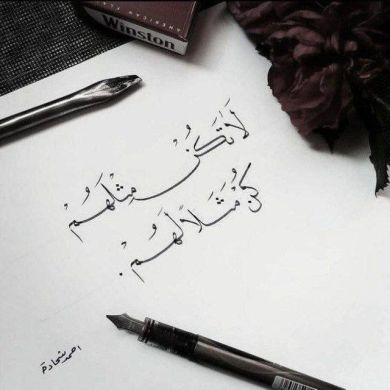 Winston
لَا تَكُنْ مِثْلَهُمْ
كُنْ مَثَلًا لَهُمْ .
احمد شحادة